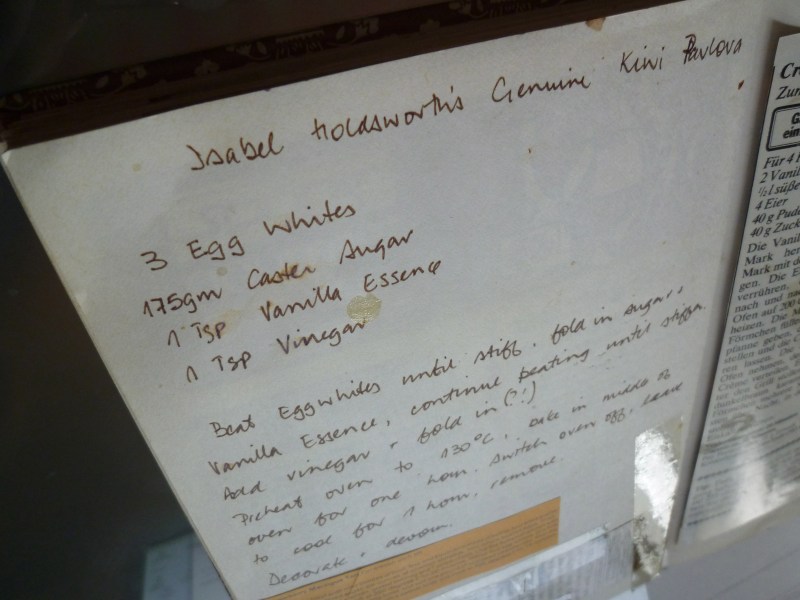 Isabel Holdsworth's Genuine Kiwi Pavlova
3 Egg Whites
175gm Caster Sugar
1 Tsp Vanilla Essence
1 Tsp Vinegar
Beat Eggwhites until stiff, fold in sugar +
Vanilla Essence, continue beating until stiffer.
Add vinegar + fold in (?!)
Preheat oven to 130°C, bake in middle of
oven for one hour. Switch oven off, leave
to cool for 1 hour, remove.
Decorate + devour.
Für 4
2 Vanil
½ l süße
4 Eier
40 g Pud
40 g Zuck
Die Vani
Mark her
Mark mit de
gen. Die E
verrühren.
nach und na
Ofen auf 200
heizen. Die M
Förmchen fülle